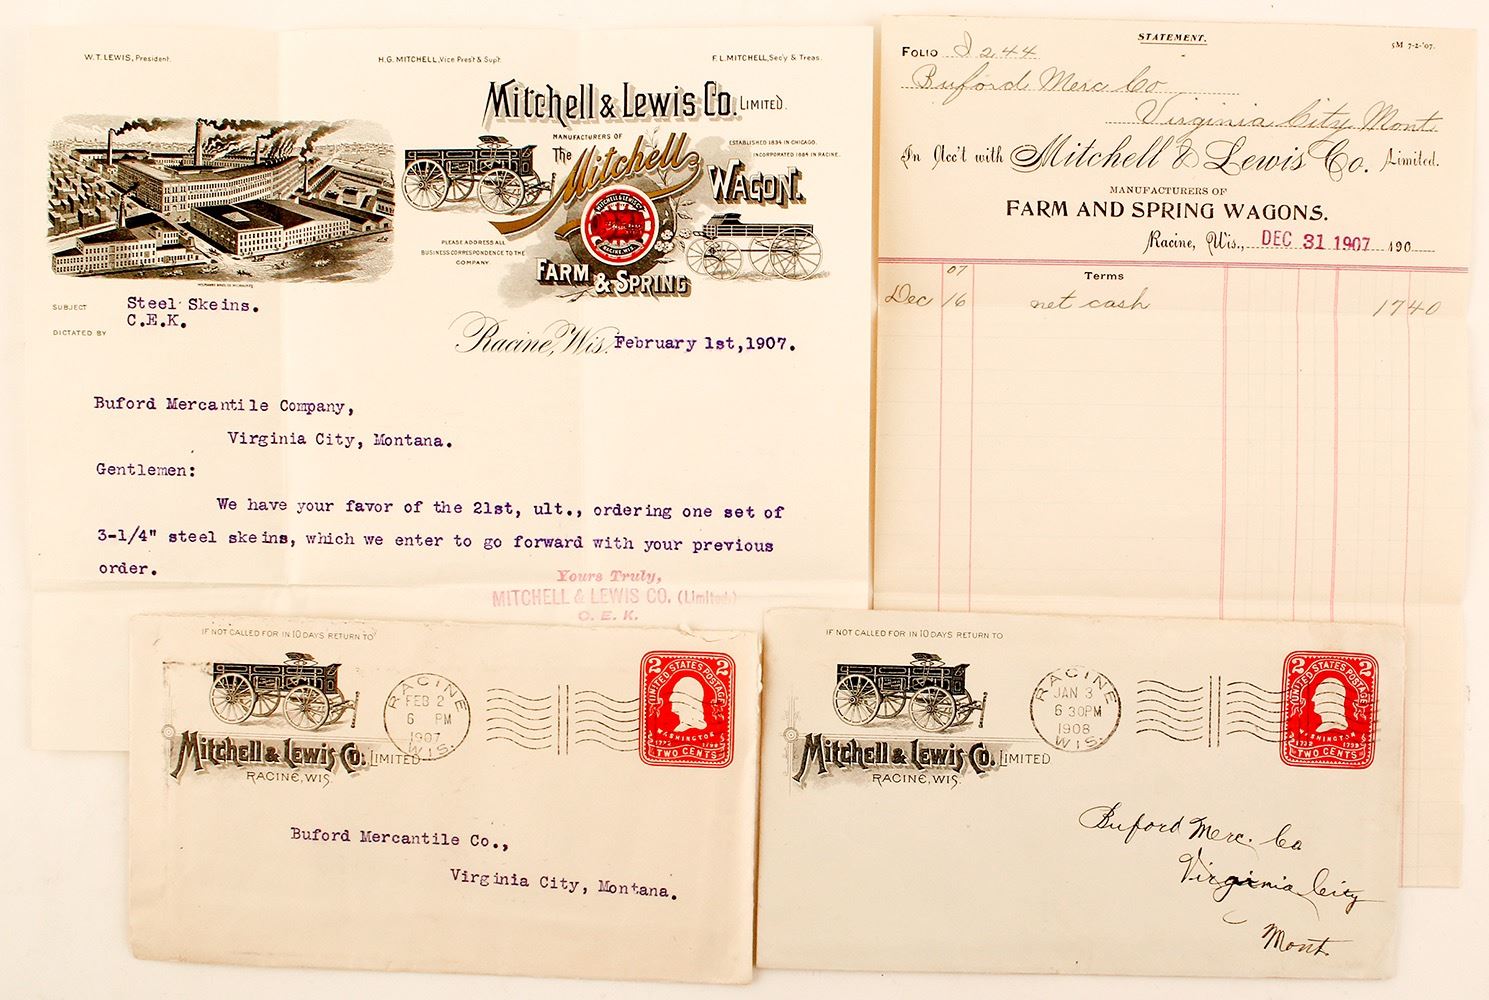 W.T. LEWIS, President.
H.G. MITCHELL, Vice Prest & Supt.
F.L. MITCHELL, Sec'y & Treas.
Mitchell & Lewis Co. LIMITED.
MANUFACTURERS OF
ESTABLISHED 1834 IN CHICAGO.
INCORPORATED 1884 IN RACINE.
The Mitchell
WAGON.
MITCHELL & LEWIS CO.
RACINE, WIS.
PLEASE ADDRESS ALL
BUSINESS CORRESPONDENCE TO THE
COMPANY
FARM & SPRING
SUBJECT Steel Skeins.
DICTATED BY C.E.K.
Racine, Wis. February 1st, 1907.
Buford Mercantile Company,
Virginia City, Montana.
Gentlemen:
We have your favor of the 21st, ult., ordering one set of
3-1/4" steel skeins, which we enter to go forward with your previous
order.
Yours Truly,
MITCHELL & LEWIS CO. (Limited)
C. E. K.
STATEMENT.
5M 7-2-'07.
FOLIO J 244
Buford Merc Co
Virginia City Mont
In Acc't with Mitchell & Lewis Co. Limited.
MANUFACTURERS OF
FARM AND SPRING WAGONS.
Racine, Wis., DEC 31 1907 190
07 Terms
Dec 16 net cash 17 40
IF NOT CALLED FOR IN 10 DAYS RETURN TO
Mitchell & Lewis Co. LIMITED
RACINE, WIS.
RACINE
FEB 2
6 PM
1907
WIS.
2 2
UNITED STATES POSTAGE
WASHINGTON
1732 1799
TWO CENTS
Buford Mercantile Co.,
Virginia City, Montana.
IF NOT CALLED FOR IN 10 DAYS RETURN TO
Mitchell & Lewis Co. LIMITED
RACINE, WIS.
RACINE
JAN 3
6 30PM
1908
WIS.
2 2
UNITED STATES POSTAGE
WASHINGTON
1732 1799
TWO CENTS
Buford Merc. Co
Virginia City
Mont.